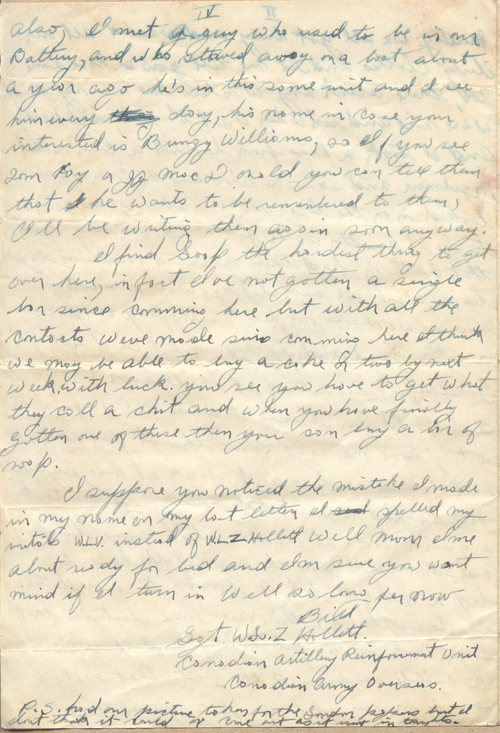 IV
also, I met a guy who used to be in our
Battery, and who stowed away on a boat about
a year ago he's in this same unit and I see
him every day, his name in case your
interested is Bungy Williams, so if you see
Tom Roy or JJ MacDonald you can tell them
that he wants to be remembered to them,
I'll be writing them again soon anyway.
I find Soap the hardest thing to get
over here, in fact I've not gotten a single
bar since comming here but with all the
contacts weve made since comming here I think
we may be able to buy a cake or two by next
week, with luck. you see you have to get what
they call a chit and when you have finally
gotten one of these then you can buy a bar of
soap.
I suppose you noticed the mistake I made
in my name on my last letter I spelled my
initals W.L.V. instead of W.L.Z Hollett Well Mom I'me
about ready for bed and I'm sure you wont
mind if I turn in Well so long for now
Bill
Sgt W.L.Z Hollett.
Canadian Artillery Reinforcement Unit
Canadian Army Overseas.
P.S. had our picture taken for the London papers but I
dont think it could of come out as it isn't in